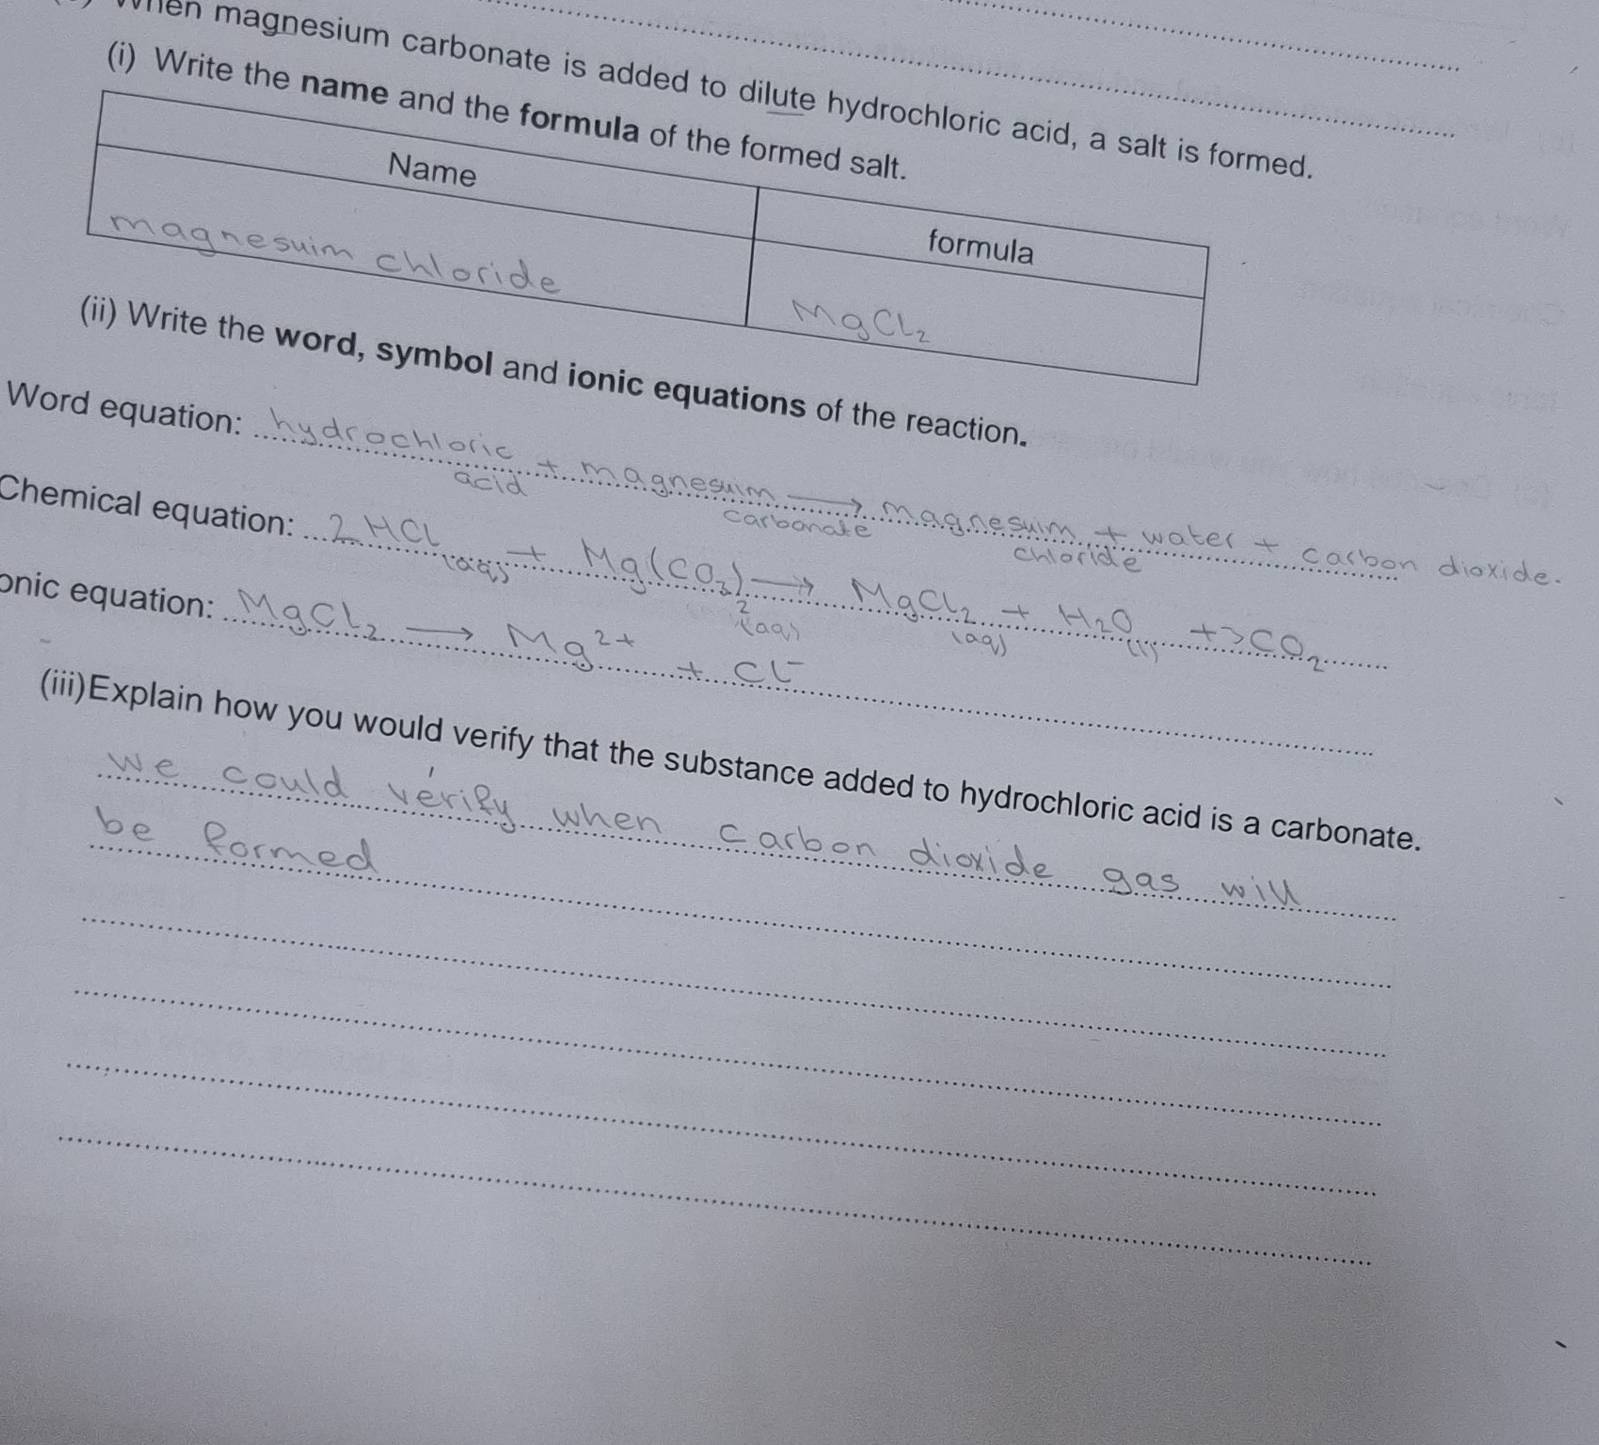 When magnesium carbonate is added to dilute hydrochloric acid, a salt is formed.
(i) Write the name and the formula of the formed salt.
Name
formula
magnesuim chloride
MgCl₂
(ii) Write the word, symbol and ionic equations of the reaction.
Word equation: hydrochloric acid + magnesuim carbonate → magnesuim chloride + water + carbon dioxide.
Chemical equation: 2HCl (aq) + Mg(CO₃)₂ (aq) → MgCl₂ (aq) + H₂O (l) + CO₂
onic equation: MgCl₂ → Mg²⁺ + Cl⁻
(iii)Explain how you would verify that the substance added to hydrochloric acid is a carbonate.
we could verify when carbon dioxide gas will
be formed